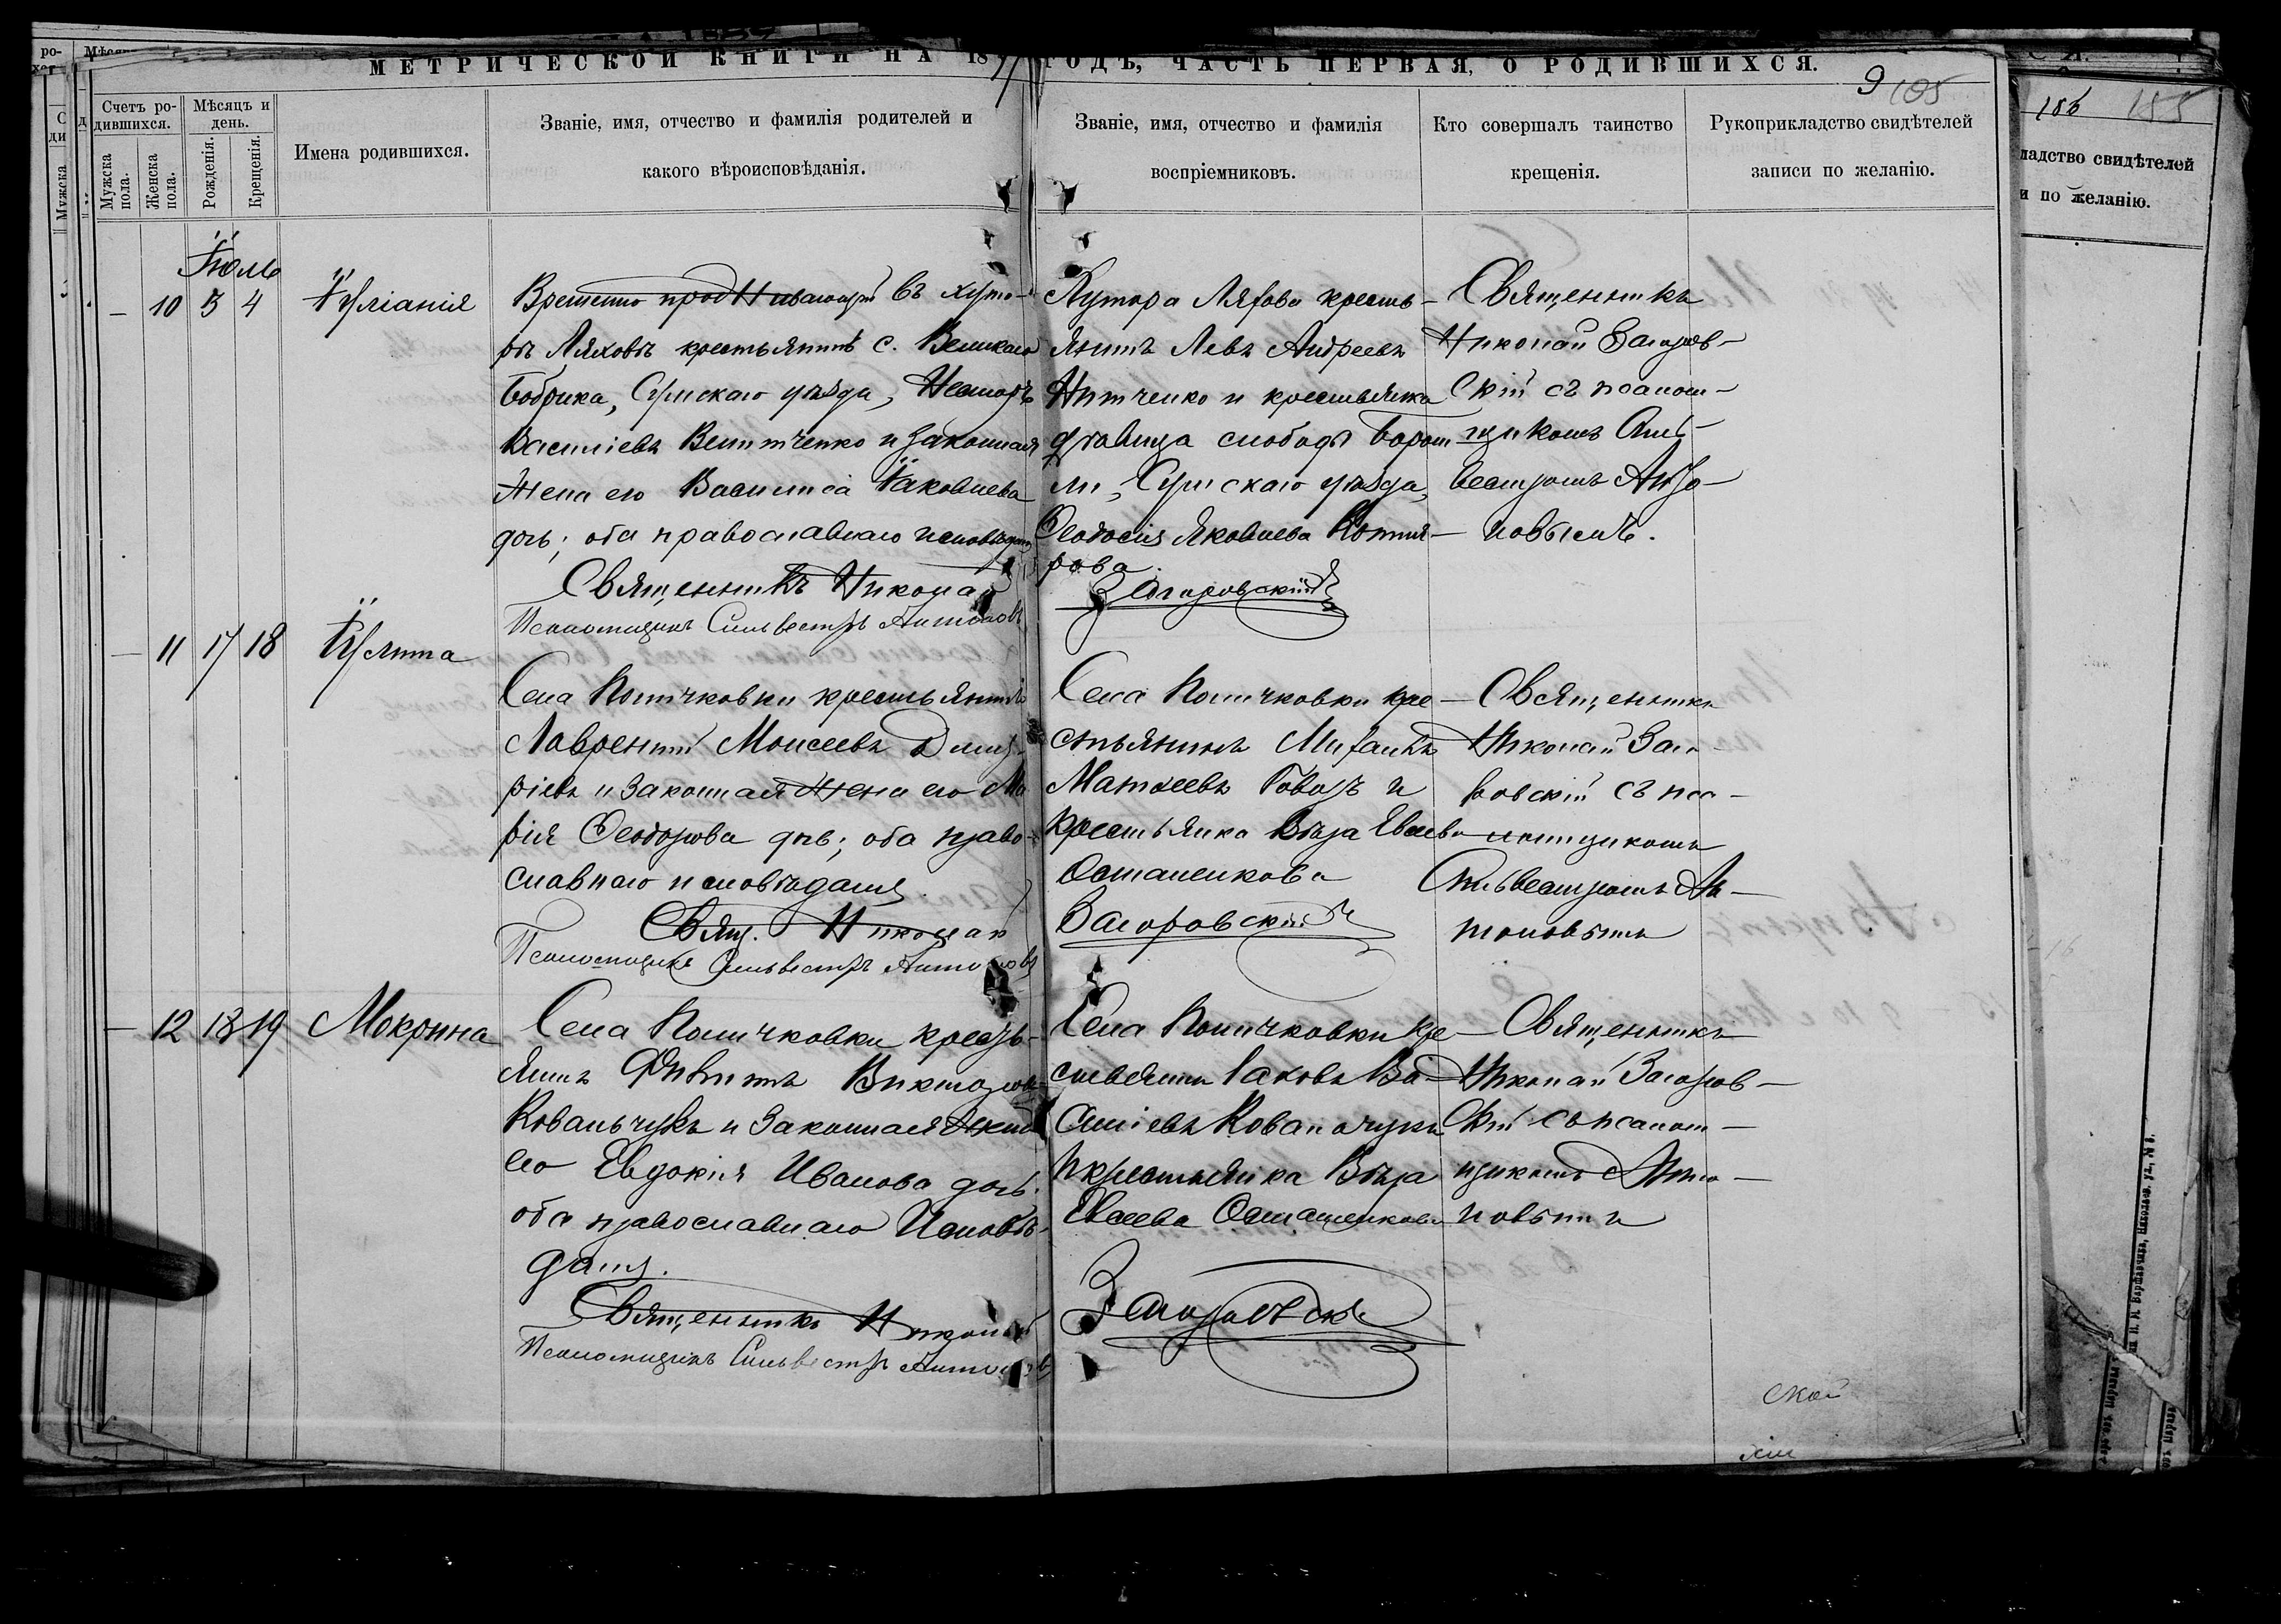 МЕТРИЧЕСКОЙ КНИГИ НА 1877 ГОДЪ, ЧАСТЬ ПЕРВАЯ, О РОДИВШИХСЯ.
9 105
Счетъ ро-
дившихся.
Мужска пола.
Женска пола.
Мѣсяцъ и
день.
Рожденія.
Крещенія.
Имена родившихся.
Званіе, имя, отчество и фамилія родителей и
какого вѣроисповѣданія.
Званіе, имя, отчество и фамилія
воспріемниковъ.
Кто совершалъ таинство
крещенія.
Рукоприкладство свидѣтелей
записи по желанію.
186 185
ладство свидѣтелей
и по желанію.
Іюль
— 10 3 4 Іуліанія
Временно проживающій въ хуто-
рѣ Ляховѣ крестьянинъ с. Великаго
Бобрика, Сумскаго уѣзда, Несторъ
Василіевъ Величченко и законная
жена его Василиса Іаковлева
дочь; оба православнаго исповѣданія
Священникъ Николай
Псаломщикъ Сильвестръ Антоновъ
Хутора Ляхова кресть-
янинъ Левъ Андреевъ
Нитченко и крестьянка
дѣвица слободы Боромли,
Сумскаго уѣзда,
Ѳеодосія Яковлева Котля-
рова.
Загоровскій
Священникъ
Николай Загоров-
скій съ псалом-
щикомъ Силь-
вестромъ Анто-
новымъ.
— 11 17 18 Іулита
Села Поличковки крестьянинъ
Лаврентій Моисеевъ Дмит-
ріевъ и законная жена его Ма
рія Ѳеодорова дочь; оба право-
славнаго исповѣданія.
Свящ. Николай
Псаломщикъ Сильвестръ Антоновъ
Села Поличковки кре-
стьянинъ Михаилъ
Матѳеевъ Говоръ и
крестьянка Вѣра Евсева
Осташенкова
Загоровскій
Священникъ
Николай Заго-
ровскій съ пса-
ломщикомъ
Сильвестромъ Ан-
тоновымъ
— 12 18 19 Мокрина
Села Поличковки кресть-
янинъ Филиппъ Викторовъ
Ковальчукъ и законная жена
его Евдокія Иванова дочь;
оба православнаго исповѣ-
данія.
Священникъ Николай
Псаломщикъ Сильвестръ Антоновъ
Села Поличковки кре-
стьянинъ Іаковъ Ва-
силіевъ Ковальчукъ
и крестьянка Вѣра
Евсеева Осташенкова
Загоровскій
Священникъ
Николай Загоров-
скій съ псалом-
щикомъ Анто-
новымъ
ской